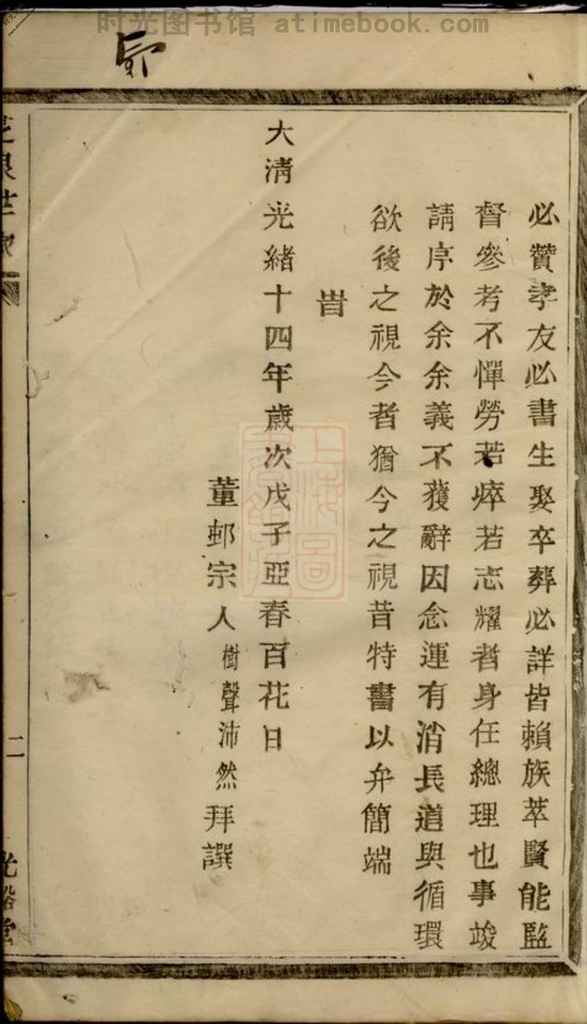 时光图书馆 www.atimebook.com
必贊孝友必書生娶卒葬必詳皆賴族萃賢能監
督參考不憚勞若焠若志耀者身任總理也事竣
請序於余余義不獲辭因念運有消長道與循環
欲後之視今者猶今之視昔特書以弁簡端
旹
大清光緒十四年歲次戊子亞春百花日
董邨宗人樹聲沛然拜譔
二